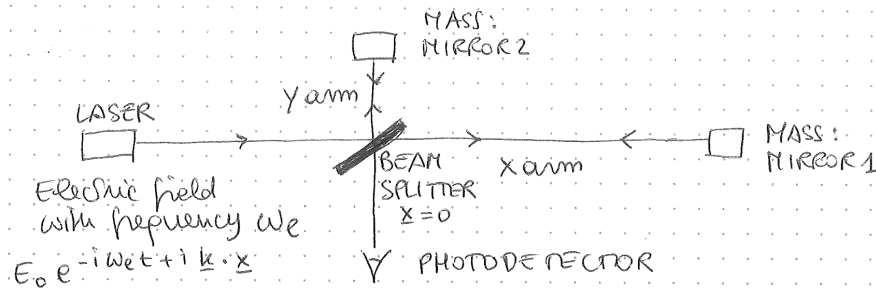 MASS:
MIRROR 2
Y arm
LASER
MASS:
MIRROR 1
X arm
BEAM
SPLITTER
x = 0
Electric field
with frequency ωe
E₀ e^-iωet + i k · x
PHOTODETECTOR